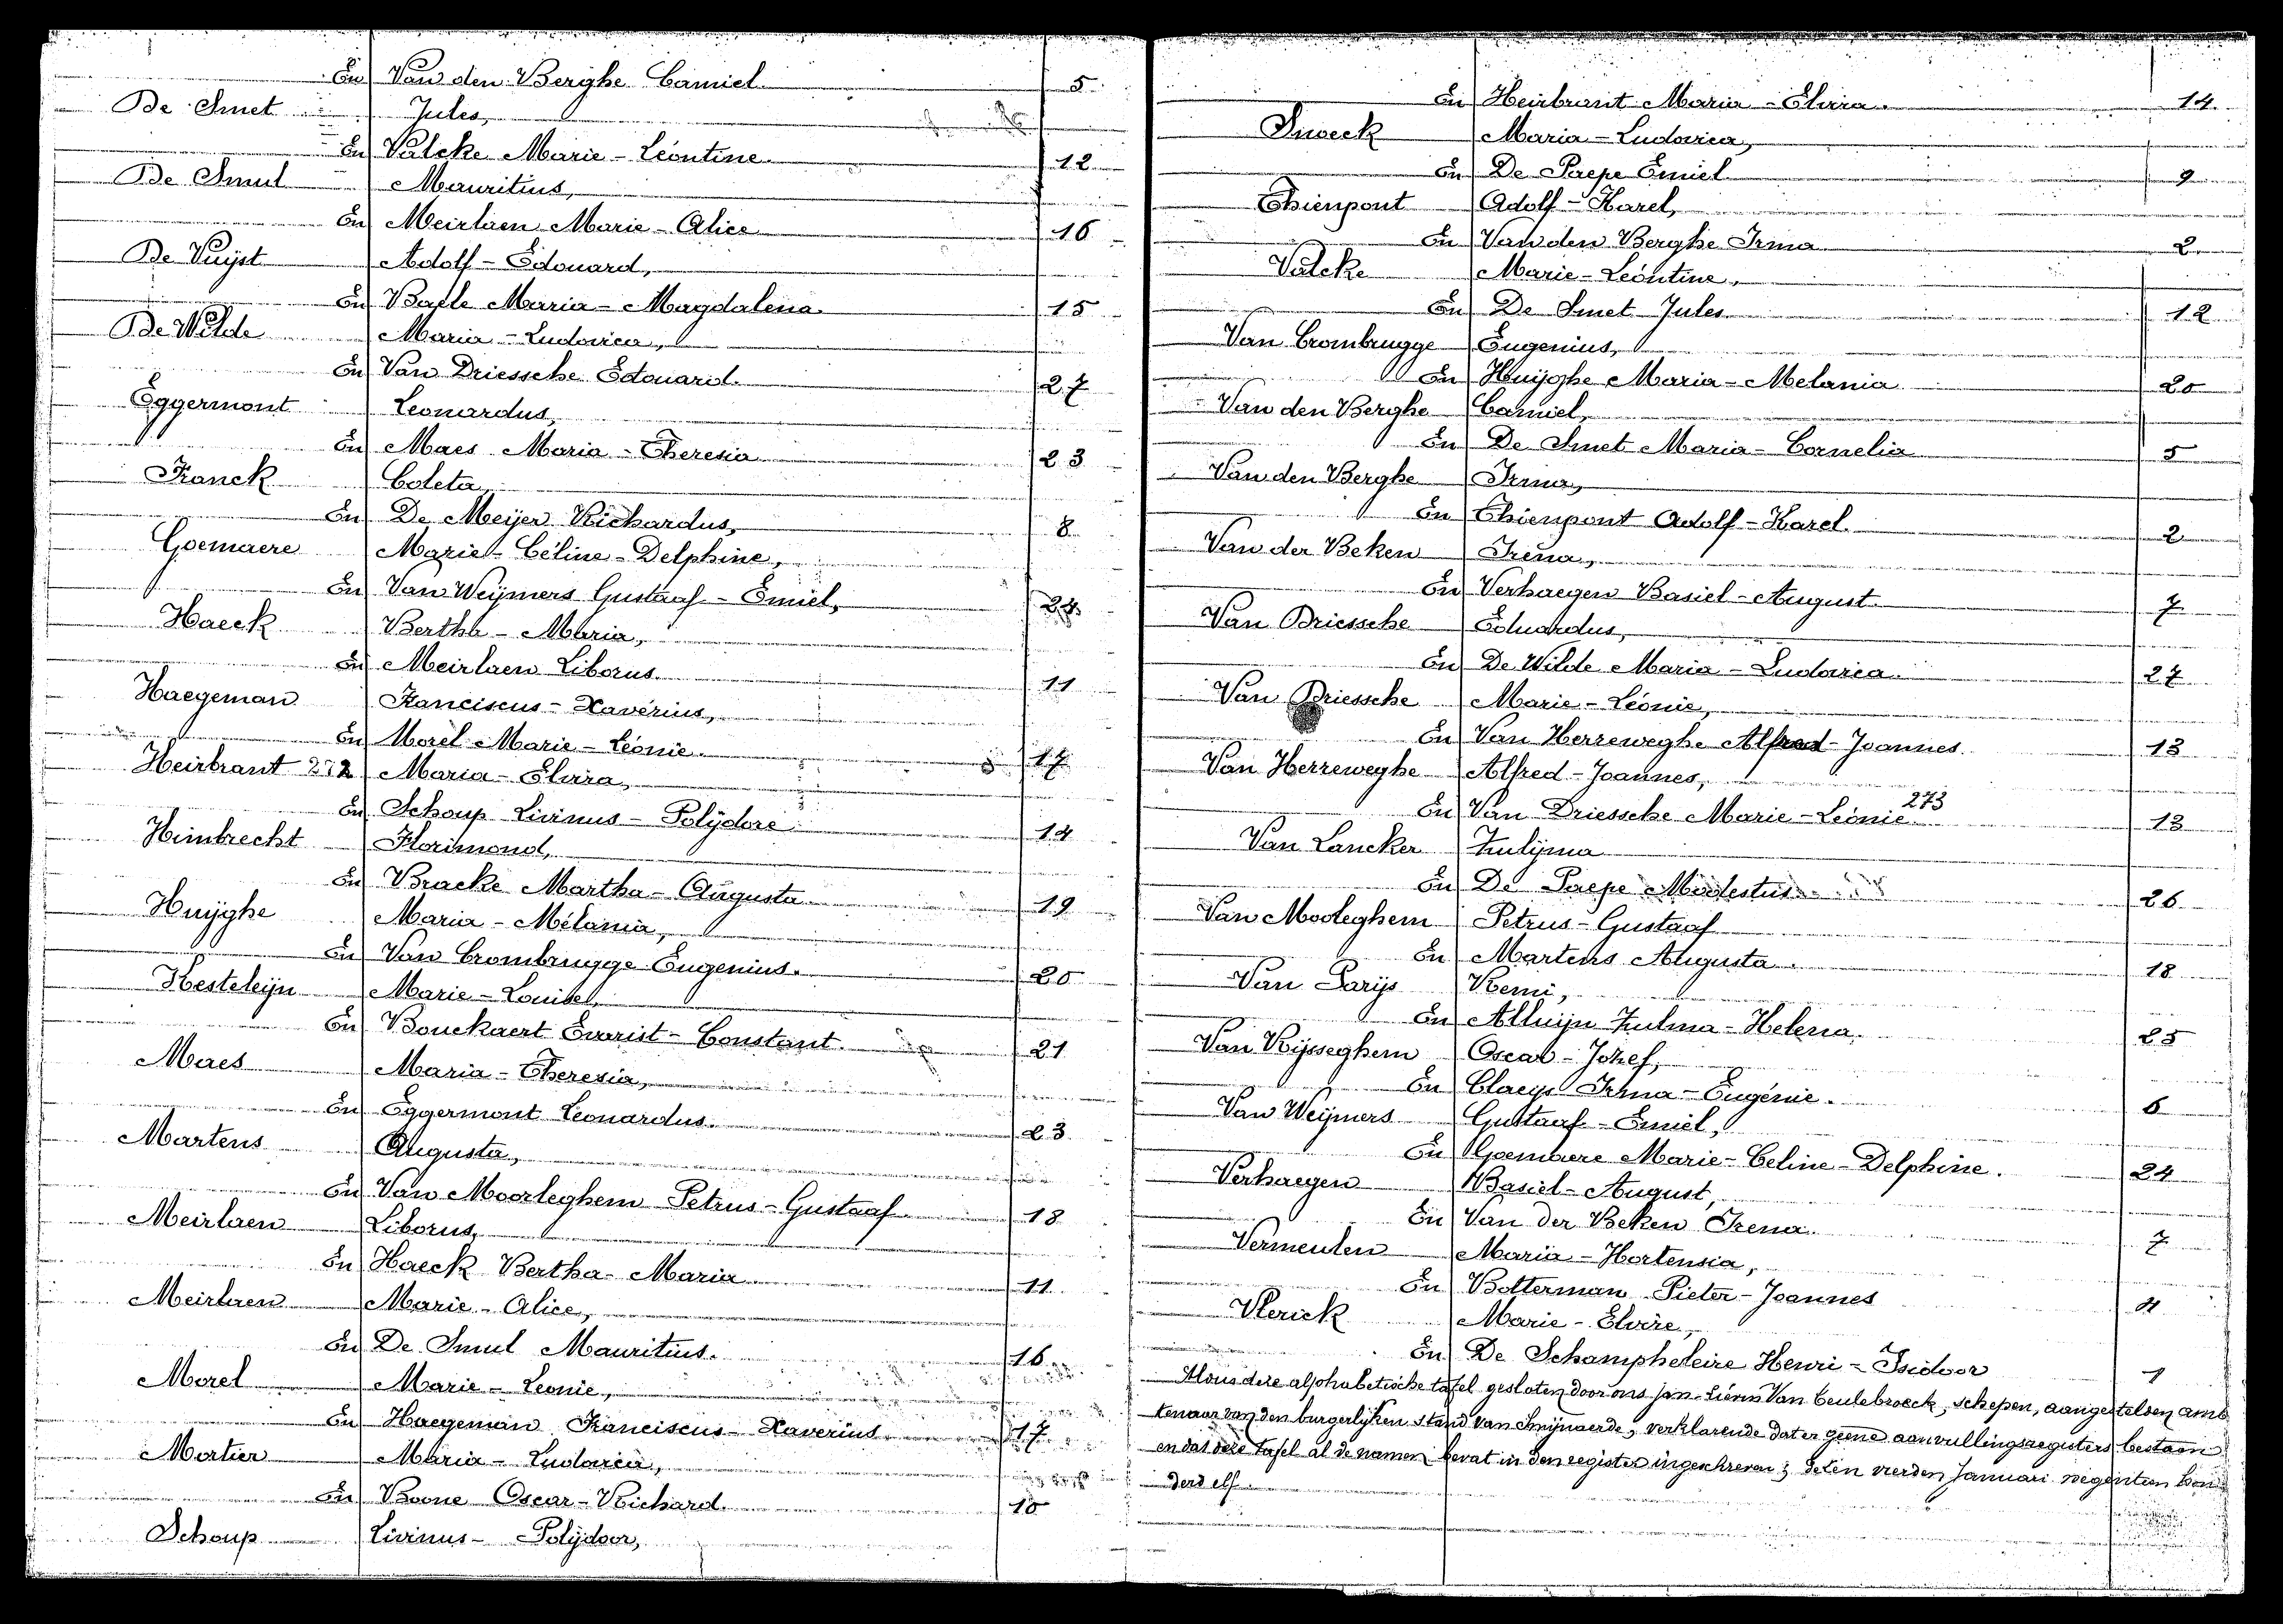 En Van den Berghe Camiel 5
De Smet Jules,
En Valcke Marie-Léontine 12
De Smul Mauritius,
En Meirlaen Marie-Alice 16
De Vuijst Adolf-Edouard,
En Baele Maria-Magdalena 15
De Wilde Maria-Ludovica,
En Van Driessche Edouard. 27
Eggermont Leonardus,
En Maes Maria-Theresia 23
Franck Coleta,
En De Meijer Richardus, 8
Goemaere Marie-Céline-Delphine,
En Van Weijmers Gustaaf-Emiel, 24
Haeck Bertha-Maria,
En Meirlaen Liborus 11
Haegeman Franciscus-Xaverius,
En Morel Marie-Léonie. 17
Heirbrant 272 Maria-Elvira,
En Schoup Livinus-Polÿdore 14
Himbrecht Florimond,
En Bracke Martha-Augusta 19
Huijghe Maria-Mélania,
En Van Crombrugge Eugenius. 20
Kesteleijn Marie-Louise,
En Bouckaert Evarist-Constant. 21
Maes Maria-Theresia,
En Eggermont Leonardus. 23
Martens Augusta,
En Van Moorleghem Petrus-Gustaaf 18
Meirlaen Liborus,
En Haeck Bertha-Maria 11
Meirlaen Marie-Alice,
En De Smul Mauritius. 16
Morel Marie-Leonie,
En Haegeman Franciscus-Xaverius 17
Mortier Maria-Ludovica,
En Boone Oscar-Richard. 10
Schoup Livinus-Polÿdoor,
En Heirbrant Maria-Elvira. 14
Maria-Ludovica,
En De Paepe Emiel 9
Thienpont Adolf-Karel,
En Van den Berghe Irma 2
Valcke Marie-Léontine,
En De Smet Jules 12
Van Crombrugge Eugenius,
En Huijghe Maria-Melania 20
Van den Berghe Camiel,
En De Smet Maria-Cornelia 5
Van den Berghe Irma,
En Thienpont Adolf-Karel. 2
Van der Beken Irena,
En Verhaegen Basiel-August. 7
Van Driessche Eduardus,
En De Wilde Maria-Ludovica. 27
Van Driessche Marie-Léonie,
En Van Herreweghe Alfred-Joannes 13
Van Herreweghe Alfred-Joannes,
273
En Van Driessche Marie-Léonie 13
Van Lancker Zulijma
En De Paepe Modestus 26
Van Mooleghem Petrus-Gustaaf
En Martens Augusta. 18
Van Parijs Remi,
En Alluijn Zulma-Helena. 25
Van Rijsseghem Oscar-Jozef,
En Claeijs Irma-Eugénie. 6
Van Weijmers Gustaaf-Emiel,
En Goemaere Marie-Celine-Delphine. 24
Verhaegen Basiel-August,
En Van der Beken Irena. 7
Vermeulen Maria-Hortensia,
En Bolterman Pieter-Joannes 4
Vlerick Marie-Elvire,
En De Schampheleire Henri-Isidoor 1
Alous deze alphabetische tafel gesloten door ons Jan-Liévin Van Ceulebroeck, schepen, aangestelden amb
tenaar van den burgerlijken stand van Smijnaerde, verklarende dat er geene aanvullingsregisters bestaan
en dat deze tafel al de namen bevat in den register ingeschreven; den vierden Januari negentien hon
derd elf.